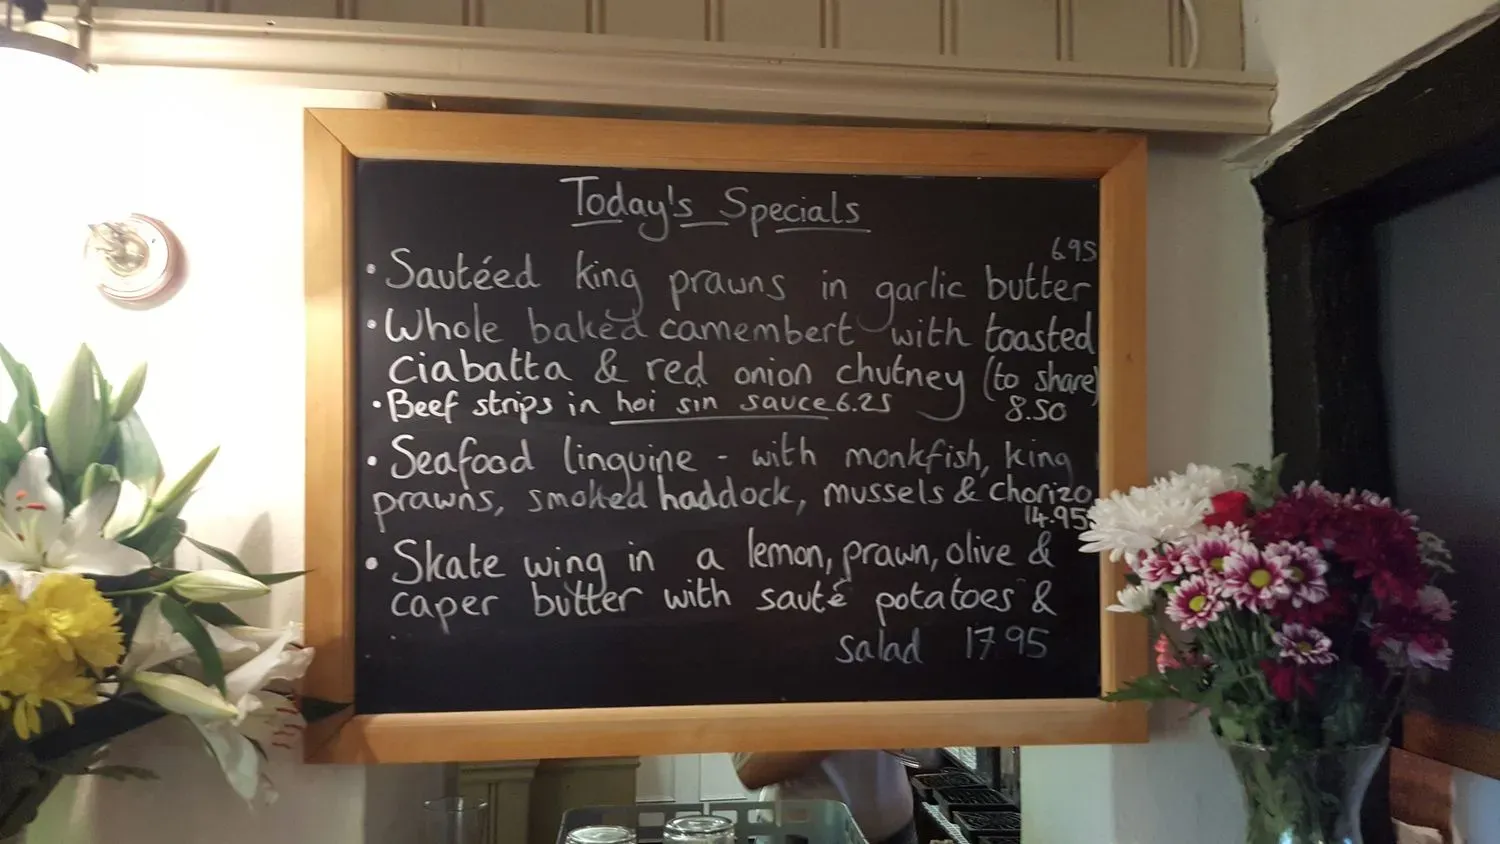 Today's Specials
6.95
• Sautéed king prawns in garlic butter
• Whole baked camembert with toasted
Ciabatta & red onion chutney (to share)
• Beef strips in hoi sin sauce 6.25 8.50
• Seafood linguine - with monkfish, king
prawns, smoked haddock, mussels & chorizo
14.95
• Skate wing in a lemon, prawn, olive &
caper butter with sauté potatoes &
salad 17 95